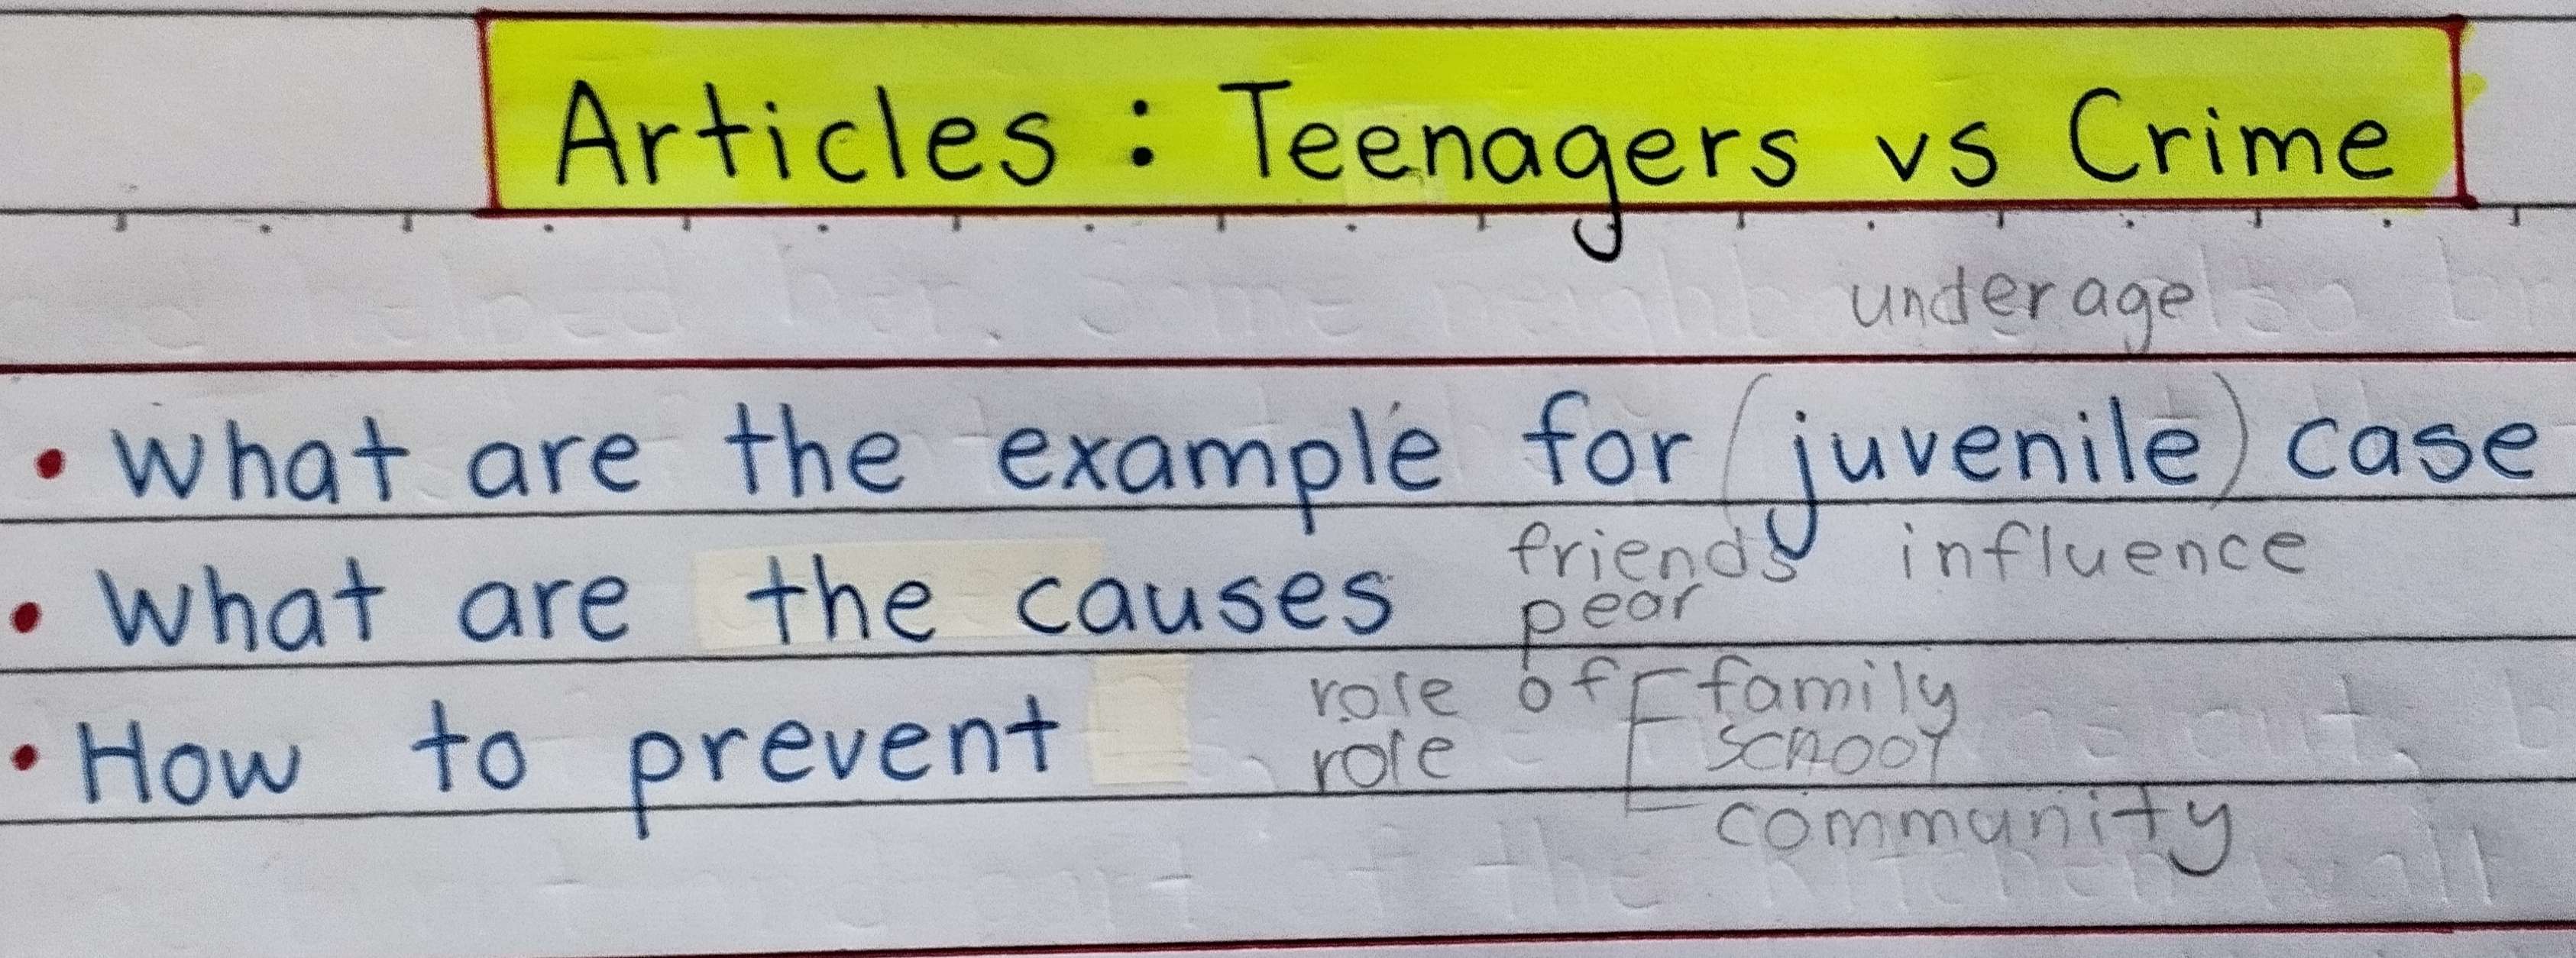 Articles : Teenagers vs Crime
underage
• What are the example for (juvenile) case
friends influence
• What are the causes
pear
role of family
• How to prevent
role school
community